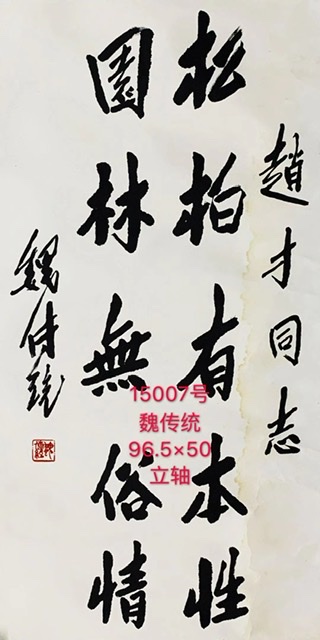 趙才同志
松柏有本性
園林無俗情
魏传統
15007号
魏传统
96.5×50
立轴